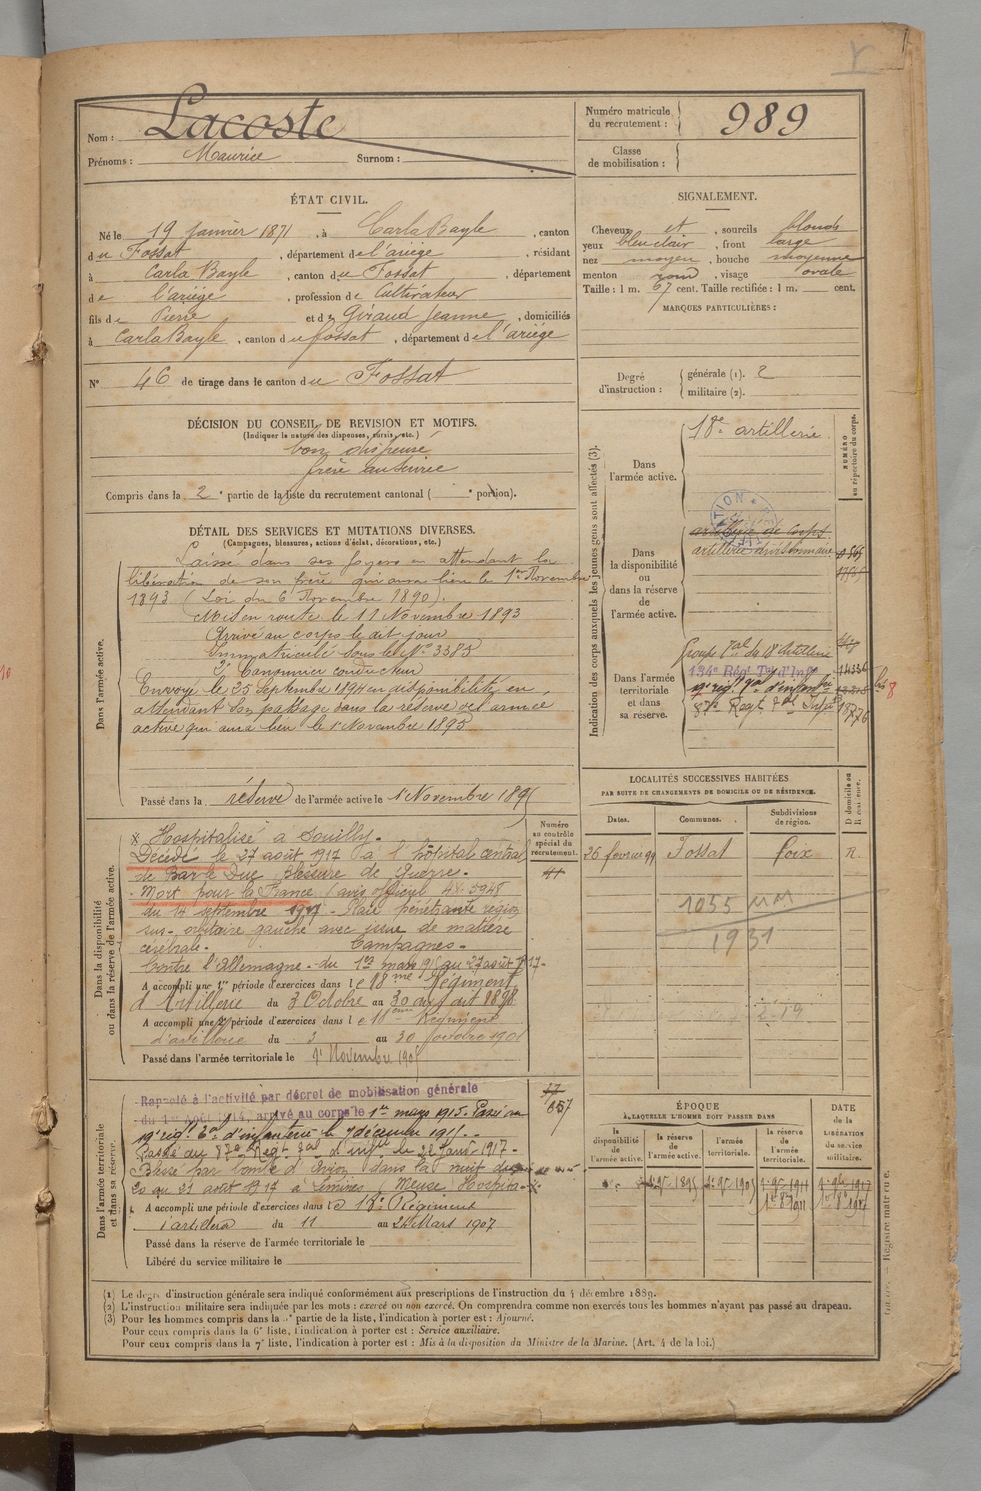 Nom : Lacoste
Prénoms : Maurice Surnom :
Numéro matricule du recrutement : 989
Classe de mobilisation :
ÉTAT CIVIL.
Né le 19 janvier 1871, à Carla Bayle, canton
du Fossat, département de l'ariège, résidant
à Carla Bayle, canton du Fossat, département
de l'ariège, profession de Cultivateur
fils de Pierre et de Giraud Jeanne, domiciliés
à Carla Bayle, canton du fossat, département de l'ariège
N° 46 de tirage dans le canton du Fossat
SIGNALEMENT.
Cheveux et, sourcils blonds
yeux bleu clair, front large
nez moyen, bouche moyenne
menton rond, visage ovale
Taille : 1 m. 67 cent. Taille rectifiée : 1 m. cent.
MARQUES PARTICULIÈRES :
Degré d'instruction : générale (1). 2
militaire (2).
DÉCISION DU CONSEIL DE REVISION ET MOTIFS.
(Indiquer la nature des dispenses, sursis, etc.)
bon dispensé
frère au service
Compris dans la 2e partie de la liste du recrutement cantonal ( e portion).
DÉTAIL DES SERVICES ET MUTATIONS DIVERSES.
(Campagnes, blessures, actions d'éclat, décorations, etc.)
Dans l'armée active.
Laissé dans ses foyers en attendant la
libération de son frère qui aura lieu le 1er Novembre
1893 (Loi du 6 Novembre 1890).
Mis en route le 11 Novembre 1893
Arrivé au corps le dit jour
Immatriculé sous le No 3385
2e Canonnier conducteur
Envoyé le 25 Septembre 1894 en disponibilité en
attendant son passage dans la réserve de l'armée
active qui aura lieu le 1er Novembre 1895
Passé dans la réserve de l'armée active le 1er Novembre 1895
Dans la disponibilité ou dans la réserve de l'armée active.
Numéro au contrôle spécial du recrutement.
x Hospitalisé à Souilly.
Décédé le 27 août 1917 à l'hôpital central
de Bar le Duc blessure de Guerre.
- Mort pour la France (avis officiel 5945
du 14 septembre 1917 - Plaie pénétrante région
sus-orbitaire gauche avec issue de matière
cérébrale. Campagnes -
Contre l'Allemagne - du 1er mars 1915 au 27 août 1917 -
A accompli une 1re période d'exercices dans le 18me Régiment
d'Artillerie du 3 Octobre au 30 du dit 1898
A accompli une 2e période d'exercices dans le 18eme Régiment
d'artillerie du 3 au 30 octobre 1901
Passé dans l'armée territoriale le 1er Novembre 1905
Dans l'armée territoriale et dans sa réserve.
Rappelé à l'activité par décret de mobilisation générale
du 1er Août 1914, arrivé au corps le 1er mars 1915. Passé au
Passé au 87e Régt Tal d'inftie le 22 1917 -
Blessé par bombe d'avion dans la nuit du
20 au 21 août 1917 à (Meuse) Hospita- x
A accompli une période d'exercices dans le 18e Régiment
d'artillerie du 11 au 24 Mars 1907
Passé dans la réserve de l'armée territoriale le
Libéré du service militaire le
Indication des corps auxquels les jeunes gens sont affectés (3).
NUMÉRO au répertoire du corps.
Dans l'armée active. 18e artillerie
Dans la disponibilité ou dans la réserve de l'armée active.
artillerie de corps
artillerie divisionnaire
Dans l'armée territoriale et dans sa réserve.
Groupe Tal du 18e artillerie
134e Régt Tal d'Infie 14336
87e Régt Tal Infie 18776
LOCALITÉS SUCCESSIVES HABITÉES
PAR SUITE DE CHANGEMENTS DE DOMICILE OU DE RÉSIDENCE.
Dates. Communes. Subdivisions de région. D domicile ou R résidence.
26 fevrier 99 Fossat foix R.
1055
1931
ÉPOQUE
A LAQUELLE L'HOMME DOIT PASSER DANS
DATE DE LA LIBÉRATION du service militaire.
la disponibilité de l'armée active. la réserve de l'armée active. l'armée territoriale. la réserve de l'armée territoriale.
1er 9bre 1895 1er 9bre 1905 1er 9bre 1911 1er 9bre 1917
(1) Le degré d'instruction générale sera indiqué conformément aux prescriptions de l'instruction du 4 décembre 1889.
(2) L'instruction militaire sera indiquée par les mots : exercé ou non exercé. On comprendra comme non exercés tous les hommes n'ayant pas passé au drapeau.
(3) Pour les hommes compris dans la 5e partie de la liste, l'indication à porter est : Ajourné.
Pour ceux compris dans la 6e liste, l'indication à porter est : Service auxiliaire.
Pour ceux compris dans la 7e liste, l'indication à porter est : Mis à la disposition du Ministre de la Marine. (Art. 4 de la loi.)
Registre matricule.